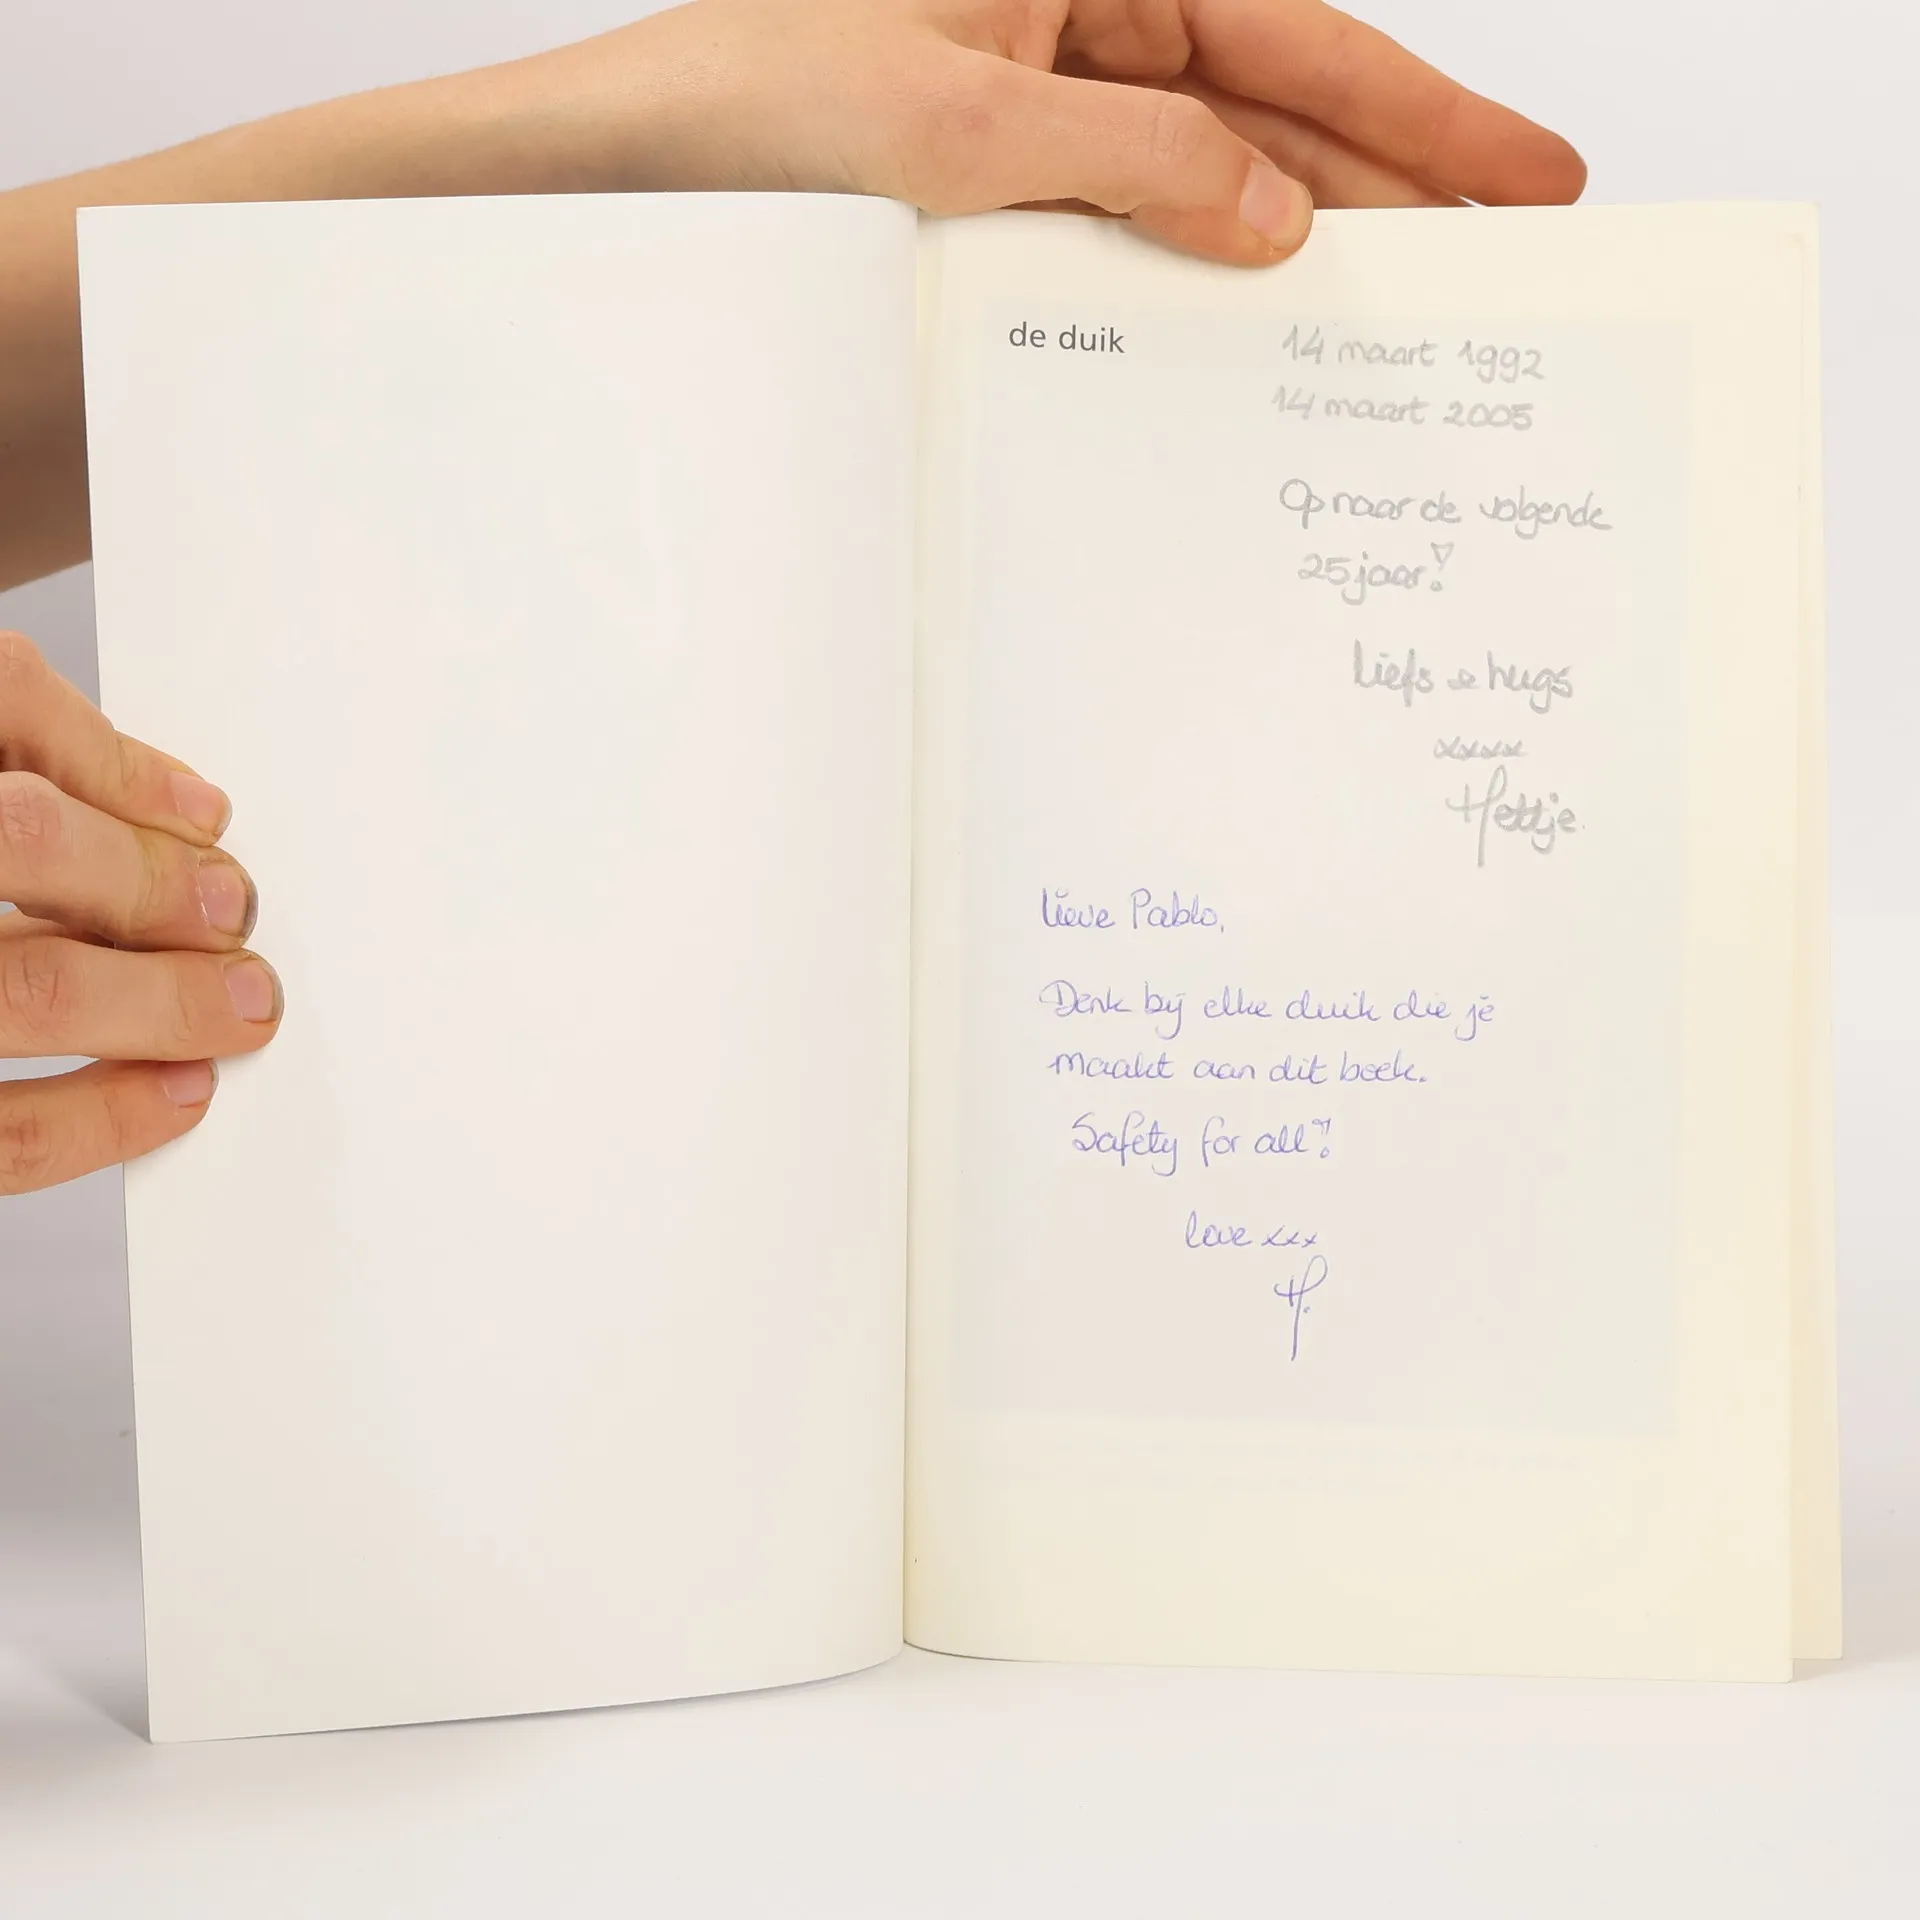 de duik
14 maart 1992
14 maart 2005
Op naar de volgende
25 jaar!
Liefs & hugs
xxxx
Hettje.
Lieve Pablo,
Denk bij elke duik die je
maakt aan dit boek.
Safety for all!
love xxx
H.